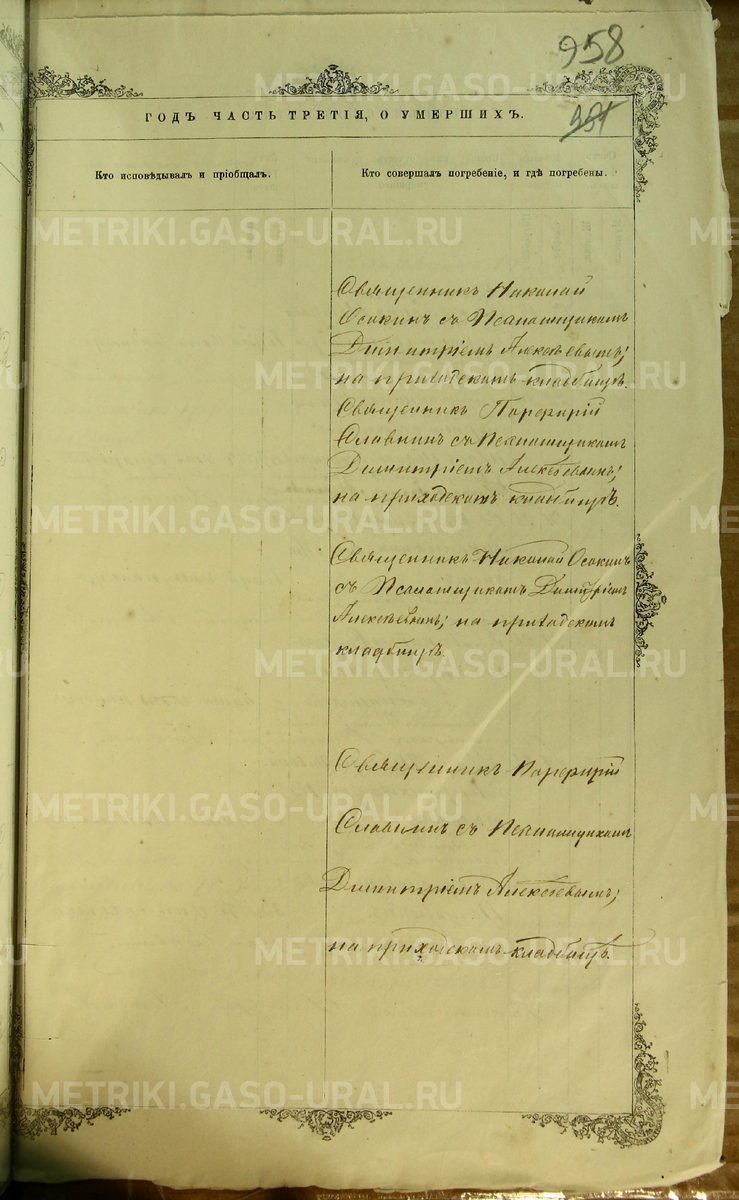 958
ГОДЪ ЧАСТЬ ТРЕТІЯ, О УМЕРШИХЪ.
Кто исповѣдывалъ и пріобщалъ.
Кто совершалъ погребеніе, и гдѣ погребены.
Священникъ Николай
Осокинъ съ Псаломщикомъ
Димитріемъ Алексѣевымъ;
на приходскомъ кладбищѣ.
Священникъ Порфирій
Славнинъ съ Псаломщикомъ
Димитріемъ Алексѣевымъ;
на приходскомъ кладбищѣ.
Священникъ Николай Осокинъ
съ Псаломщикомъ Димитріемъ
Алексѣевымъ; на приходскомъ
кладбищѣ.
Священникъ Порфирій
Славнинъ съ Псаломщикомъ
Димитріемъ Алексѣевымъ;
на приходскомъ кладбищѣ.
METRIKI.GASO-URAL.RU